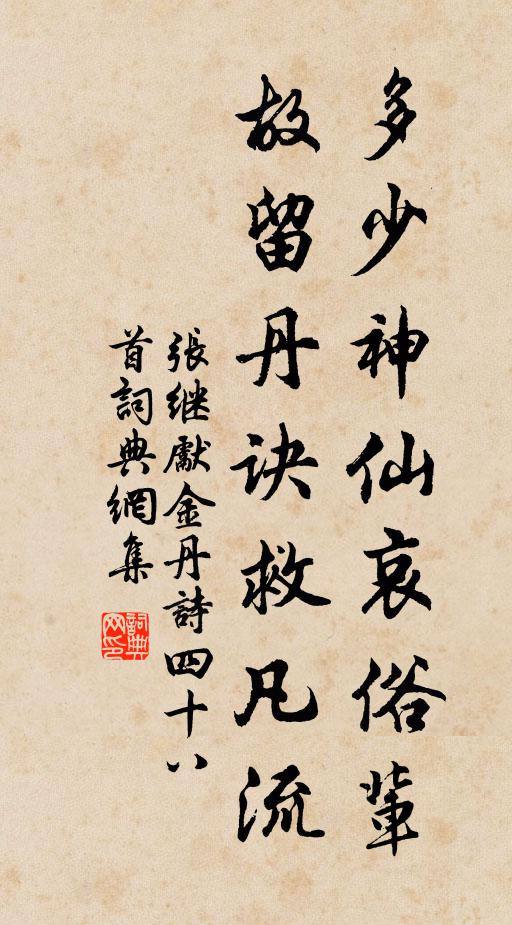 多少神仙哀俗輩
故留丹诀救凡流
張继獻金丹詩四十八
首詞典網集
詞典网印